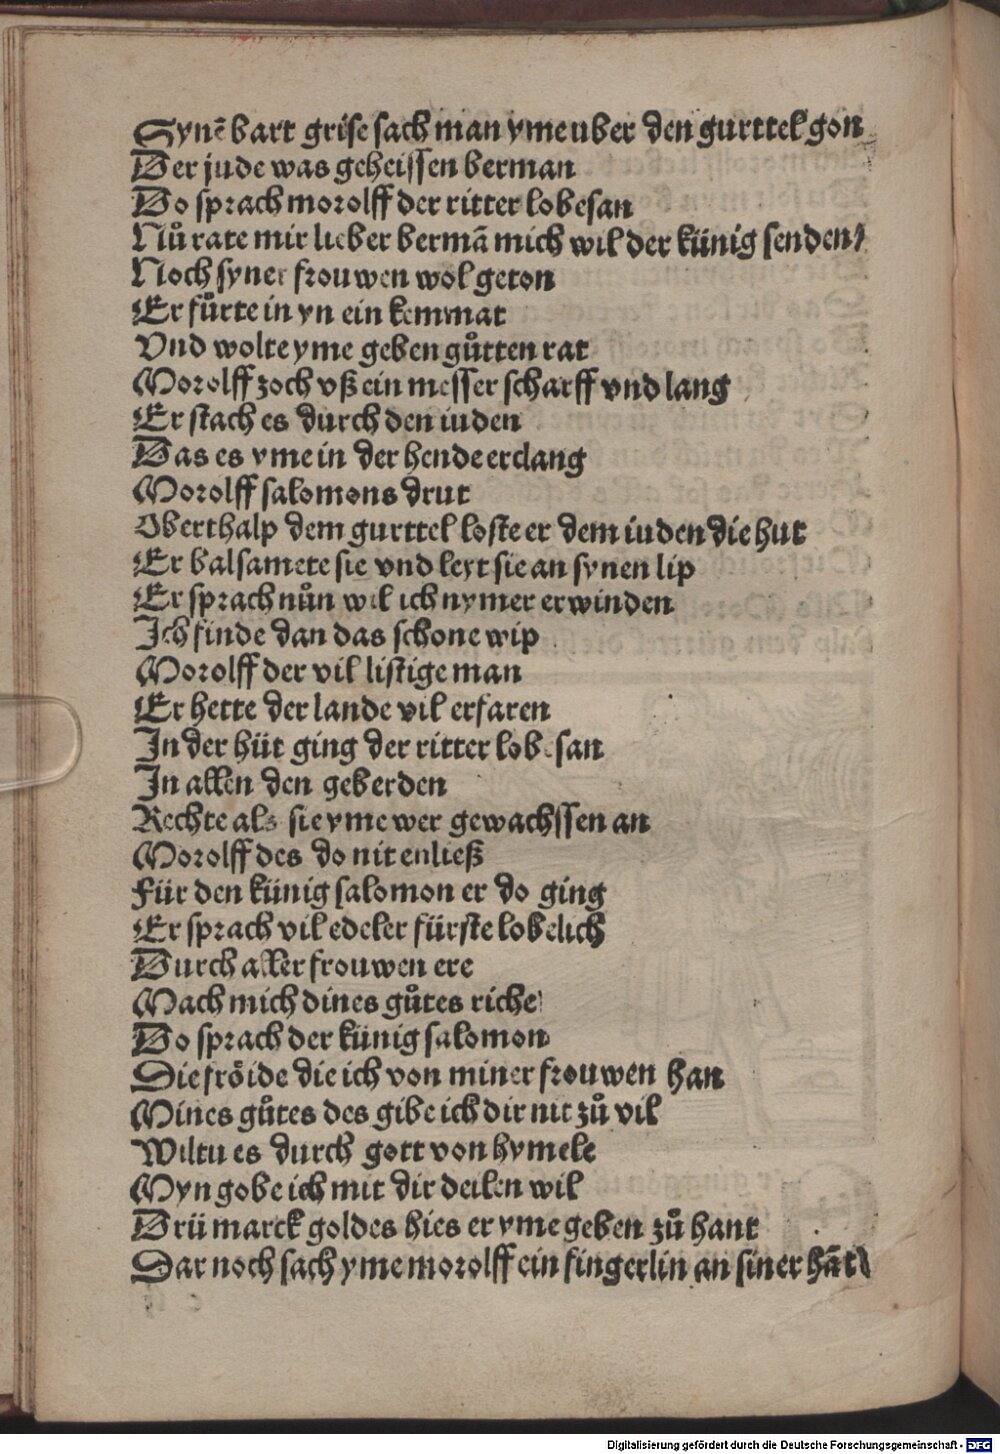 Synē bart grise sach man yme uber den gurttel gon
Der jude was geheissen berman
Do sprach morolff der ritter lobesan
Nů rate mir lieber bermā mich wil der künig senden
Noch syner frouwen wol geton
Er fůrte in yn ein kemmat
Vnd wolte yme geben gůtten rat
Morolff zoch vß ein messer scharff vnd lang
Er stach es durch den iuden
Das es yme in der hende erclang
Morolff salomons drut
Oberthalp dem gurttel loste er dem iuden die hut
Er balsamete sie vnd leyt sie an synen lip
Er sprach nůn wil ich nymer erwinden
Ich finde dan das schone wip
Morolff der vil listige man
Er hette der lande vil erfaren
In der hüt ging der ritter lobesan
In allen den geberden
Rechte als sie yme wer gewachssen an
Morolff des do nit enließ
Für den künig salomon er do ging
Er sprach vil edeler fürste lobelich
Durch aller frouwen ere
Mach mich dines gůtes riche
Do sprach der künig salomon
Die fröide die ich von miner frouwen han
Mines gůtes des gibe ich dir nit zů vil
Wiltu es durch gott von hymele
Myn gobe ich mit dir deilen wil
Drü marck goldes hies er yme geben zů hant
Dar noch sach yme morolff ein fingerlin an siner hāt
Digitalisierung gefördert durch die Deutsche Forschungsgemeinschaft - DFG